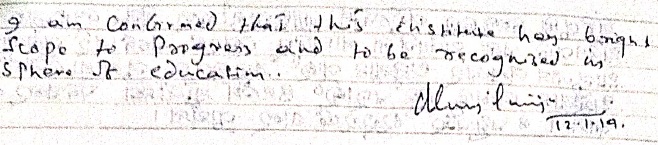 I am confirmed that this institute has bright
scope to Progress and to be recognized in
sphere of education.
12.1.19.